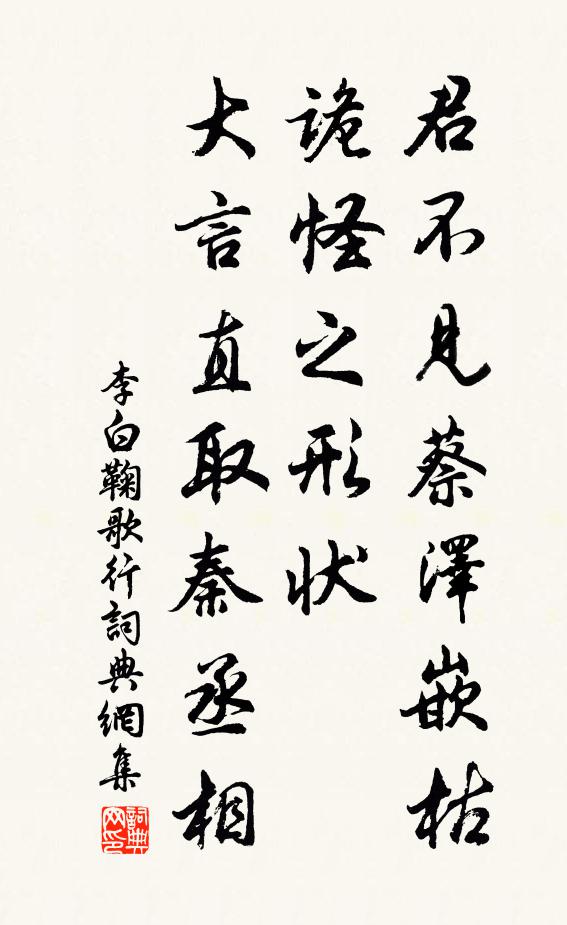 君不見蔡澤嵌枯
詭怪之形状
大言直取秦丞相
李白鞠歌行詞典網集
詞典
网印